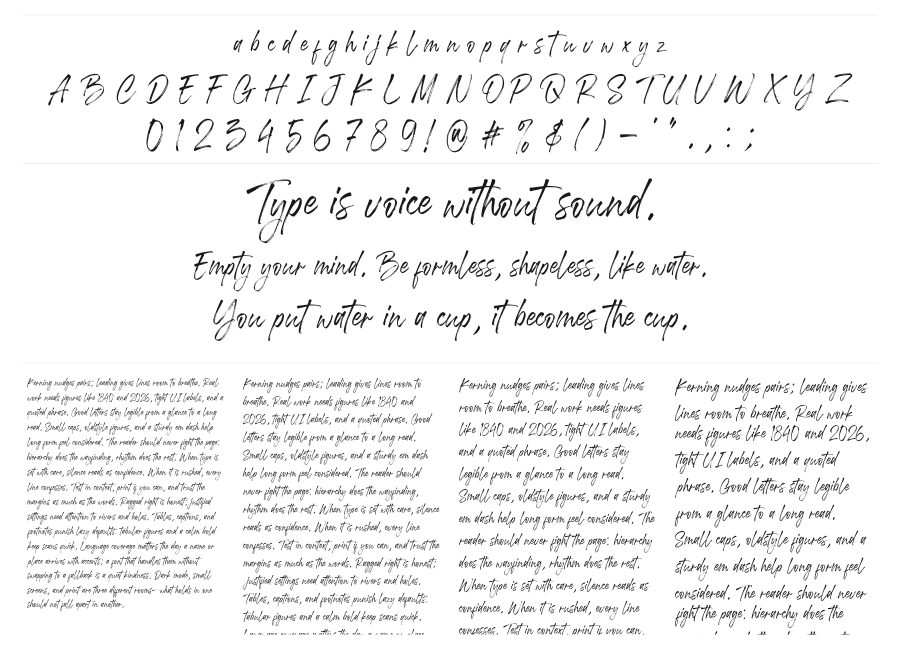 a b c d e f g h i j k l m n o p q r s t u v w x y z
A B C D E F G H I J K L M N O P Q R S T U V W X Y Z
0 1 2 3 4 5 6 7 8 9 ! @ # % $ ( ) - ' " . , : ;
Type is voice without sound.
Empty your mind. Be formless, shapeless, like water.
You put water in a cup, it becomes the cup.
Kerning nudges pairs; leading gives lines room to breathe. Real
work needs figures like 1840 and 2026, tight UI labels, and a
quoted phrase. Good letters stay legible from a glance to a long
read. Small caps, oldstyle figures, and a sturdy em dash help
long form feel considered. The reader should never fight the page:
hierarchy does the wayfinding, rhythm does the rest. When type is
set with care, silence reads as confidence. When it is rushed, every
line confesses. Test in context, print if you can, and trust the
margins as much as the words. Ragged right is honest; justified
settings need attention to rivers and holes. Tables, captions, and
footnotes punish lazy defaults: tabular figures and a calm bold
keep scans quick. Language coverage matters the day a name or
place arrives with accents; a font that handles them without
swapping to a fallback is a quiet kindness. Dark mode, small
screens, and print are three different rooms- what holds in one
should not fall apart in another.
Kerning nudges pairs; leading gives lines room to
breathe. Real work needs figures like 1840 and
2026, tight UI labels, and a quoted phrase. Good
letters stay legible from a glance to a long read.
Small caps, oldstyle figures, and a sturdy em dash
help long form feel considered. The reader should
never fight the page: hierarchy does the wayfinding,
rhythm does the rest. When type is set with care, silence
reads as confidence. When it is rushed, every line
confesses. Test in context, print if you can, and trust the
margins as much as the words. Ragged right is honest;
justified settings need attention to rivers and holes.
Tables, captions, and footnotes punish lazy defaults:
tabular figures and a calm bold keep scans quick.
Language coverage matters the day a name or place
Kerning nudges pairs; leading gives lines
room to breathe. Real work needs figures
like 1840 and 2026, tight UI labels,
and a quoted phrase. Good letters stay
legible from a glance to a long read.
Small caps, oldstyle figures, and a sturdy
em dash help long form feel considered. The
reader should never fight the page: hierarchy
does the wayfinding, rhythm does the rest.
When type is set with care, silence reads as
confidence. When it is rushed, every line
confesses. Test in context, print if you can,
Kerning nudges pairs; leading gives
lines room to breathe. Real work
needs figures like 1840 and 2026,
tight UI labels, and a quoted
phrase. Good letters stay legible
from a glance to a long read.
Small caps, oldstyle figures, and a
sturdy em dash help long form feel
considered. The reader should never
fight the page: hierarchy does the